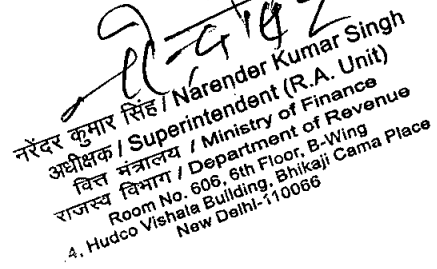 नरेंदर कुमार सिंह / Narender Kumar Singh
अधीक्षक / Superintendent (R.A. Unit)
वित्त मंत्रालय / Ministry of Finance
राजस्व विभाग / Department of Revenue
Room No. 606, 6th Floor, B-Wing
14, Hudco Vishala Building, Bhikaji Cama Place
New Delhi-110066